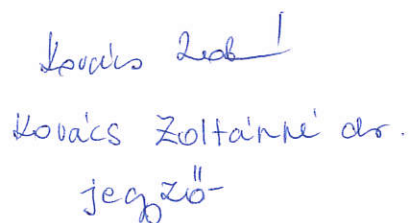 Kovács
Kovács Zoltánné dr.
jegyző